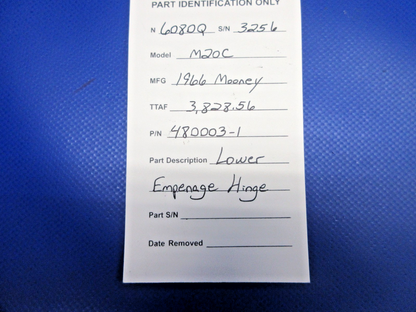 PART IDENTIFICATION ONLY
N 6080Q S/N 3256
Model M20C
MFG 1966 Mooney
TTAF 3,828.56
P/N 480003-1
Part Description Lower
Empenage Hinge
Part S/N
Date Removed